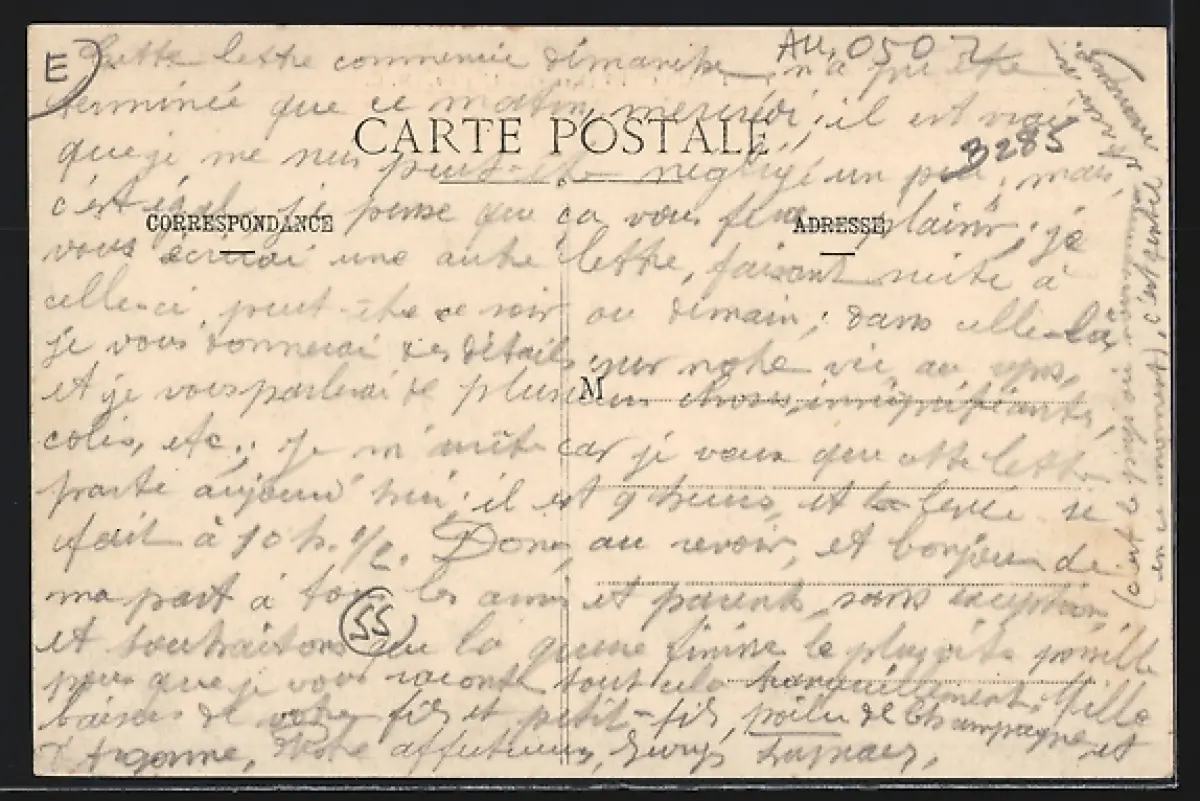 E
AU, 0507
Cette lettre commencée dimanche, n'a pu être
terminée que ce matin, mercredi, il est vrai
CARTE POSTALE
3285
que je me suis peut-être négligé un peu, mais,
c'est égal, je pense que ça vous fera plaisir; je
CORRESPONDANCE
ADRESSE
vous écrirai une autre lettre, faisant suite à
celle-ci, peut-être ce soir ou demain; dans celle-là
je vous donnerai des détails sur notre vie au
et je vous parlerai de plusieurs choses, insignifiantes,
M
colis, etc.; je m'arrête car je veux que cette lettre
parte aujourd'hui; il est 9 heures, et la levée se
fait à 10 h. 1/2. Donc, au revoir, et bonjour de
ma part à tous les amis et parents, sans exception,
55
et souhaitons que la guerre finisse le plus vite possible
pour que je vous raconte tout cela tranquillement. Mille
baisers de votre fils et petit-fils, poilu de Champagne et
d'Argonne, Votre affectueux,
(c'est
en ce moment), c'est